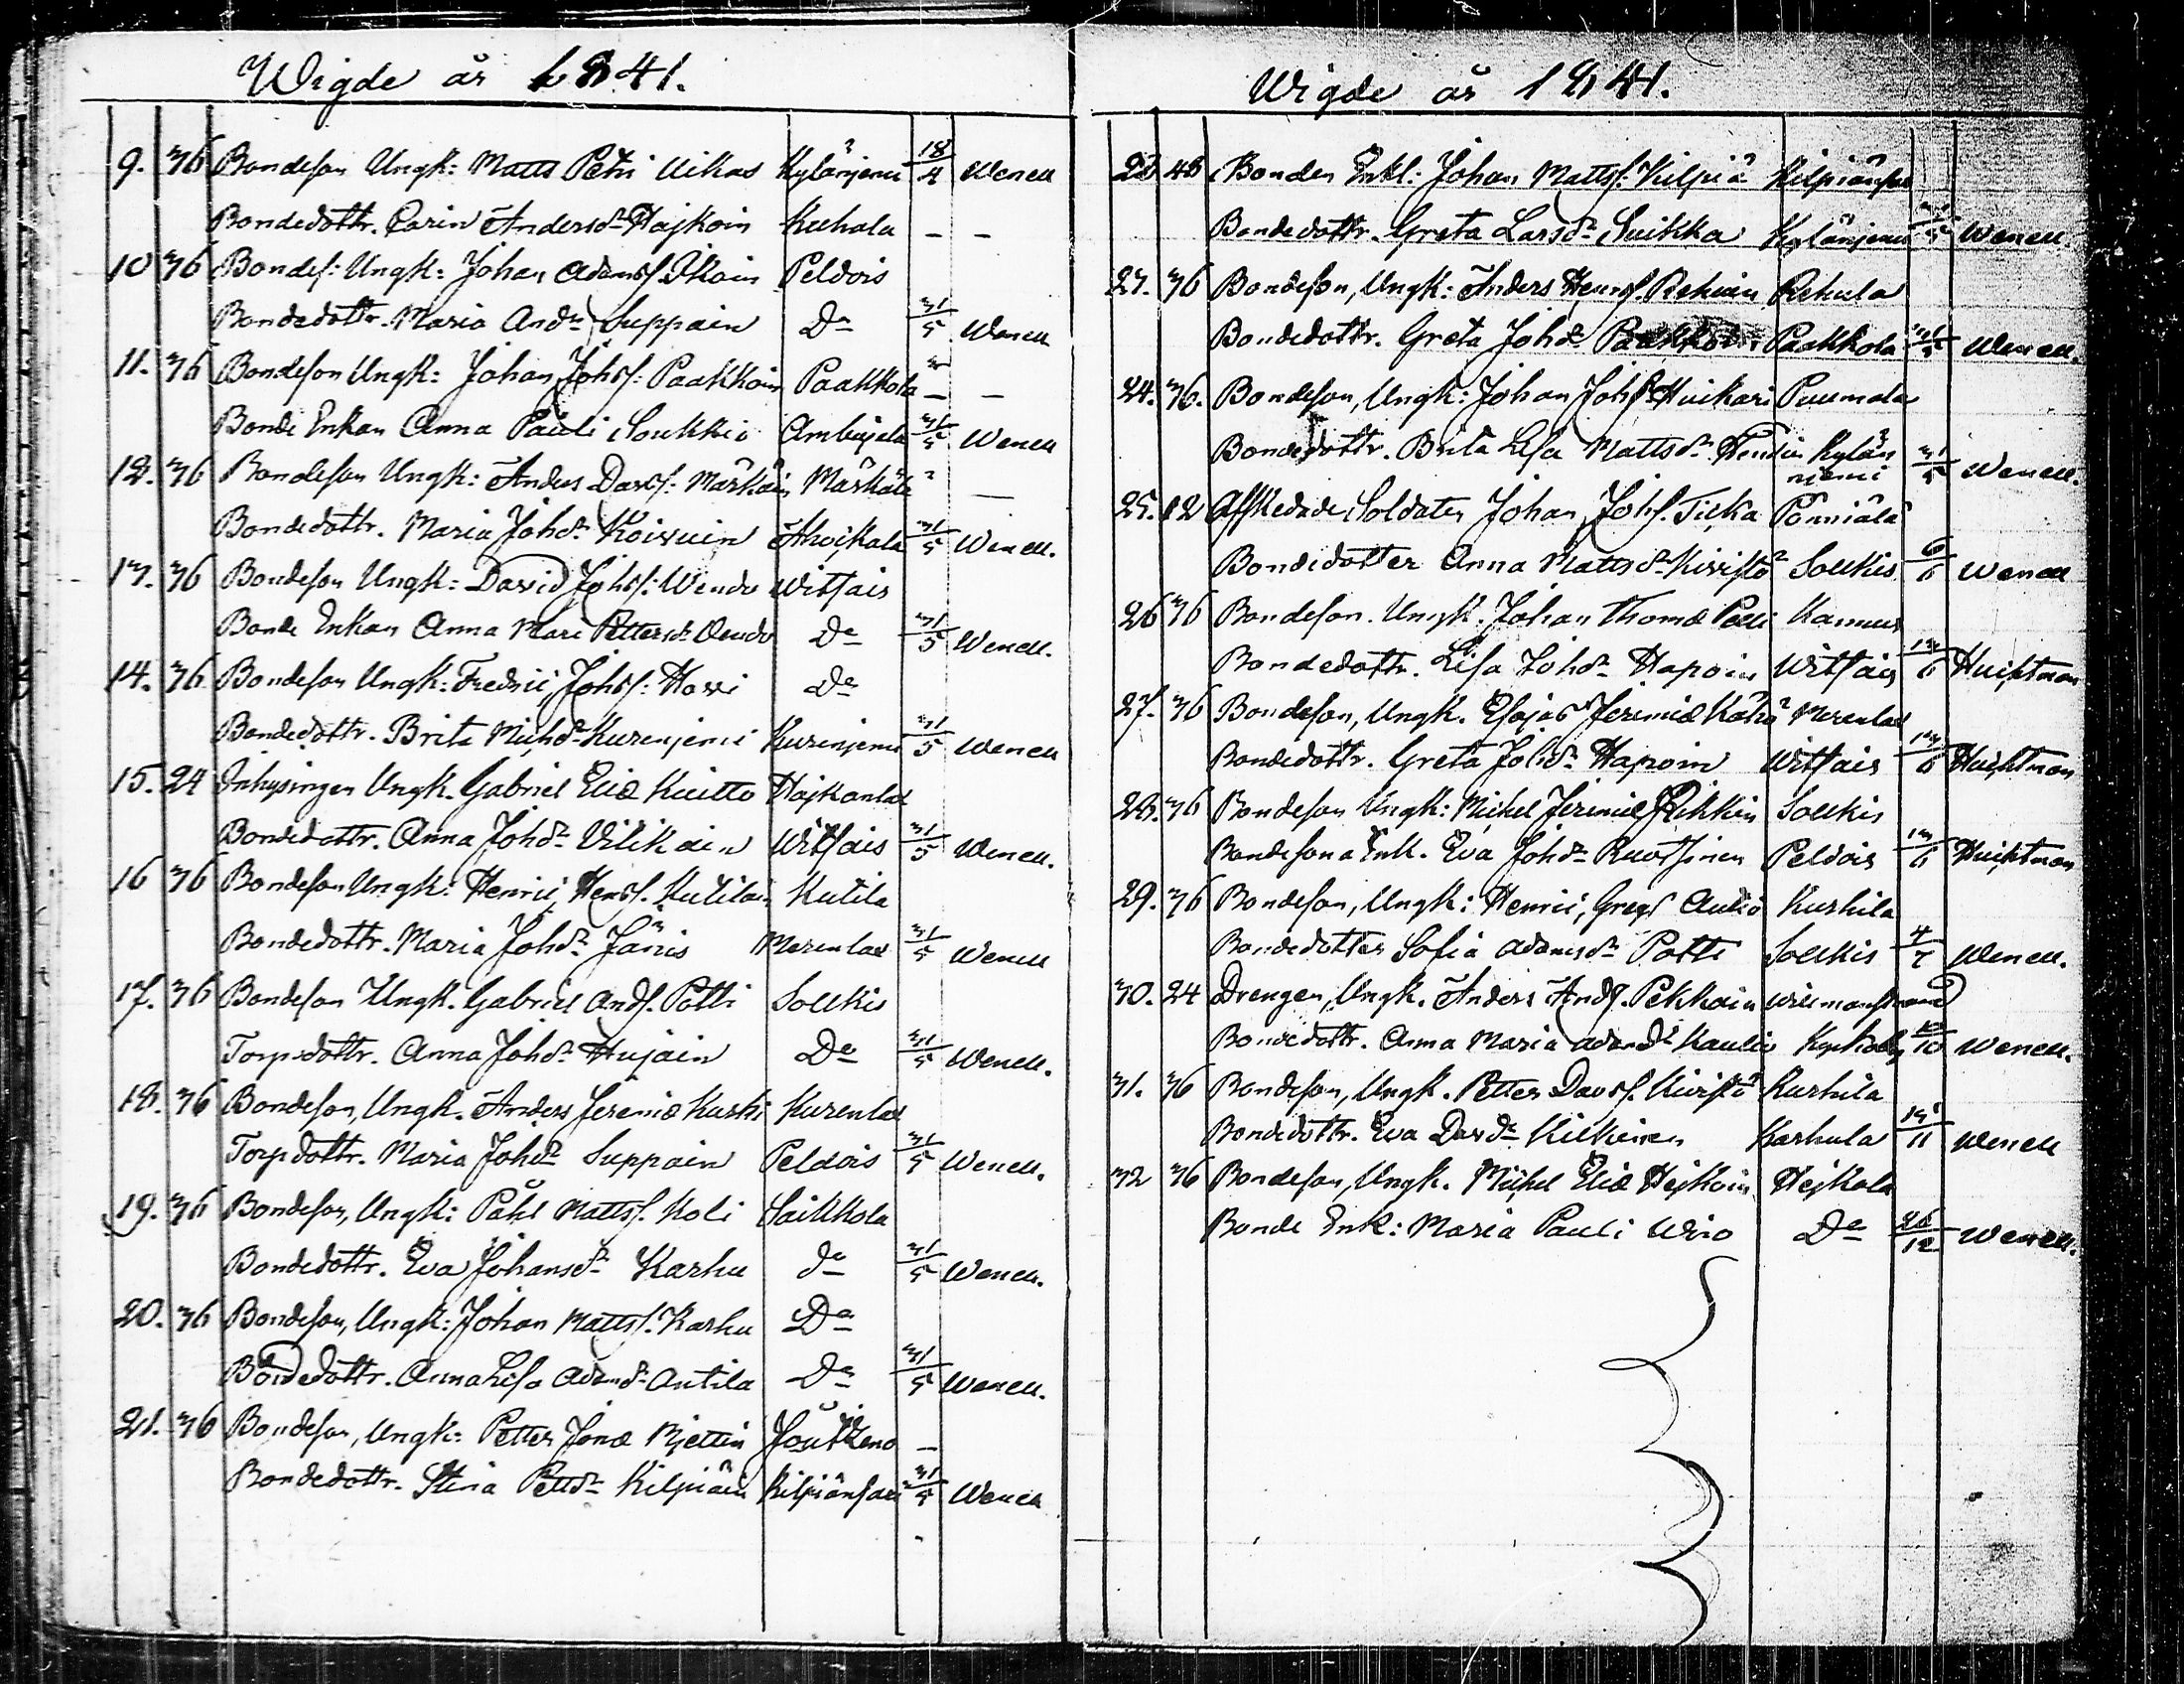 Wigde år 1841.
9. 36 Bondeson Ungk: Matts Petri Uikas Kylänjemi 18/4 Wenell
Bondedottr. Carin Andersdr Hajkoin Kuhala – –
10 36 Bondes: Ungk: Johan Adamss. Ikoin Peldois
Bondedottr. Maria Anddr Suppain Do 31/5 Wenell
11. 36 Bondeson Ungk: Johan Johss: Paakkoin Paakkola – –
Bonde Enkan Anna Pauli Soukkio 31/5 Wenell
12. 36 Bondeson Ungk: Anders Davs: Märkäin Märkälä –
Bondedottr. Maria Johdr Koivuin 31/5 Wenell.
13. 36 Bondeson Ungk: David Johss: Wendo Witsais
Bonde Enkan Anna Mari Pettersdr Do 31/5 Wenell.
14. 36 Bondeson Ungk: Fredric Johss: Do
Bondedottr. Brita Michdr Kurenjemi Kurenjemi 31/5 Wenell
15. 24 Inhysingen Ungk. Gabriel Eliæ Kuitto Hajkanlax
Bondedottr. Anna Johdr Vilikain Witsais 31/5 Wenell.
16 36 Bondeson Ungk: Henric Henrs. Kutilain Kutila
Bondedottr. Maria Johdr Jänis Merenlax 31/5 Wenell
17. 36 Bondeson Ungk. Gabriel Ands. Potti Solkis
Torpdottr. Anna Johdr Hujain Do 31/5 Wenell.
18. 36 Bondeson, Ungk. Anders Jeremiæ Kurki Kurenlax
Torpdottr. Maria Johdr Suppain Peldois 31/5 Wenell.
19. 36 Bondeson, Ungk: Påhl Mattss. Koli Saikkola
Bondedottr. Eva Johansdr Karhu do 31/5 Wenell.
20. 36 Bondeson, Ungk: Johan Mattss. Karhu Do
Bondedottr. Anna Lisa Adamdr Antila Do 31/5 Wenell.
21. 36 Bondeson, Ungk: Petter Jonæ Mjettin Joutzeno –
Bondedottr. Stina Pettdr Kilpiäin Kilpiänsari 31/5 Wenell
Wigde år 1841.
48 Bonden Enkl: Johan Mattss. Kilpiä Kilpiänsari
Bondedottr. Greta Larsdr Suikka Kylänjemi Wenell
23. 36 Bondeson, Ungk: Anders Henrs. Rekuin Rekula
Bondedottr. Greta Johdr Paakkola 31/5 Wenell.
24. 36. Bondeson, Ungk: Johan Johss Huikari Puumala
Bondedottr. Brita Lisa Mattsdr Kylän
njemi 31/5 Wenell.
25. 12 Afskedade Soldaten Johan Johs. Tiska Pönniälä
Bondedotter Anna Mattsdr Kivistö Solkis 6/6 Wenell
26 36 Bondeson. Ungk. Johan Thomæ Pelli Kannus
Bondedottr. Lisa Johdr Hapoin Witsais 13/6 Huchtman
27. 36 Bondeson, Ungk. Esajas Jeremiæ Merenlax
Bondedottr. Greta Johdr Hapoin Witsais 13/6 Huchtman
28. 36 Bondeson Ungk: Michel Jeremiæ Solkis
Bondesona Enk. Eva Johdr Peldois 13/6 Huchtman
29. 36 Bondeson, Ungk: Henric Gregs Aulio Kurhila
Bondedotter Sofia Adamsdr Potti Solkis 4/7 Wenell.
30. 24 Drengen, Ungk. Anders Ands. Pekkain Wilmanstrand
Bondedottr. Anna Maria Adamdr Kaulio Wenell.
31. 36 Bondeson, Ungk. Petter Davs. Kivistö Kurhila
Bondedottr. Eva Davdr Kilkinen Karhula Wenell
32 36 Bondeson, Ungk. Michel Eliæ Hejkoin Hejkola
Bonde Enk: Maria Pauli Wiro Do 26/12 Wenell.